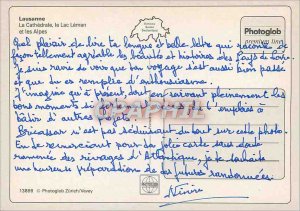 Lausanne
La Cathédrale, le Lac Léman
et les Alpes
Photoglob
Quel plaisir de lire ta longue et belle lettre qui raconte de
façon tellement agréable les beautés et histoires des Pays de Loire.
Je suis ravie de voir que ton voyage s'est aussi bien passé
et que tu es remplie d'enthousiasme.
J'imagine qu'à présent, tout en suivant pleinement les
bons moments
bâtir d'autres projets.
n'est pas séduisant du tout sur cette photo.
En te remerciant pour ta jolie carte sans doute
ramenée des rivages d'Atlantique, je te souhaite
une heureuse préparation de ces futures randonnées.
13898 © Photoglob Zürich/Vevey